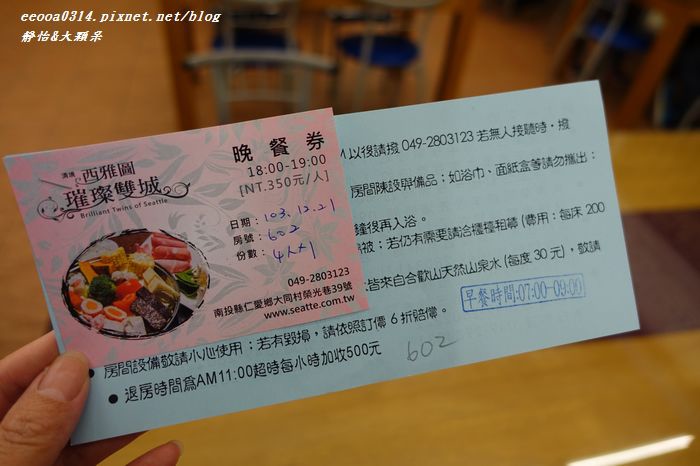 eeooa0314.pixnet.net/blog
靜怡&大顆呆
清境
西雅圖
璀璨雙城
Brilliant Twins of Seattle
晚餐券
18:00-19:00
[NT.350元/人]
日期：103.12.21
房號：602
份數：4人x1
049-2803123
南投縣仁愛鄉大同村榮光巷39號
www.seatte.com.tw
以後請撥 049-2803123 若無人接聽時，撥
房間陳設與備品；如浴巾、面紙盒等請勿攜出；
鐘後再入浴。
被；若仍有需要請洽櫃檯租賃 (費用：每床 200
皆來自合歡山天然山泉水 (每度 30 元)，敬請
早餐時間:07:00-09:00
● 房間設備敬請小心使用；若有毀損，請依照訂價 6 折賠償。
● 退房時間為AM11:00超時每小時加收500元
602